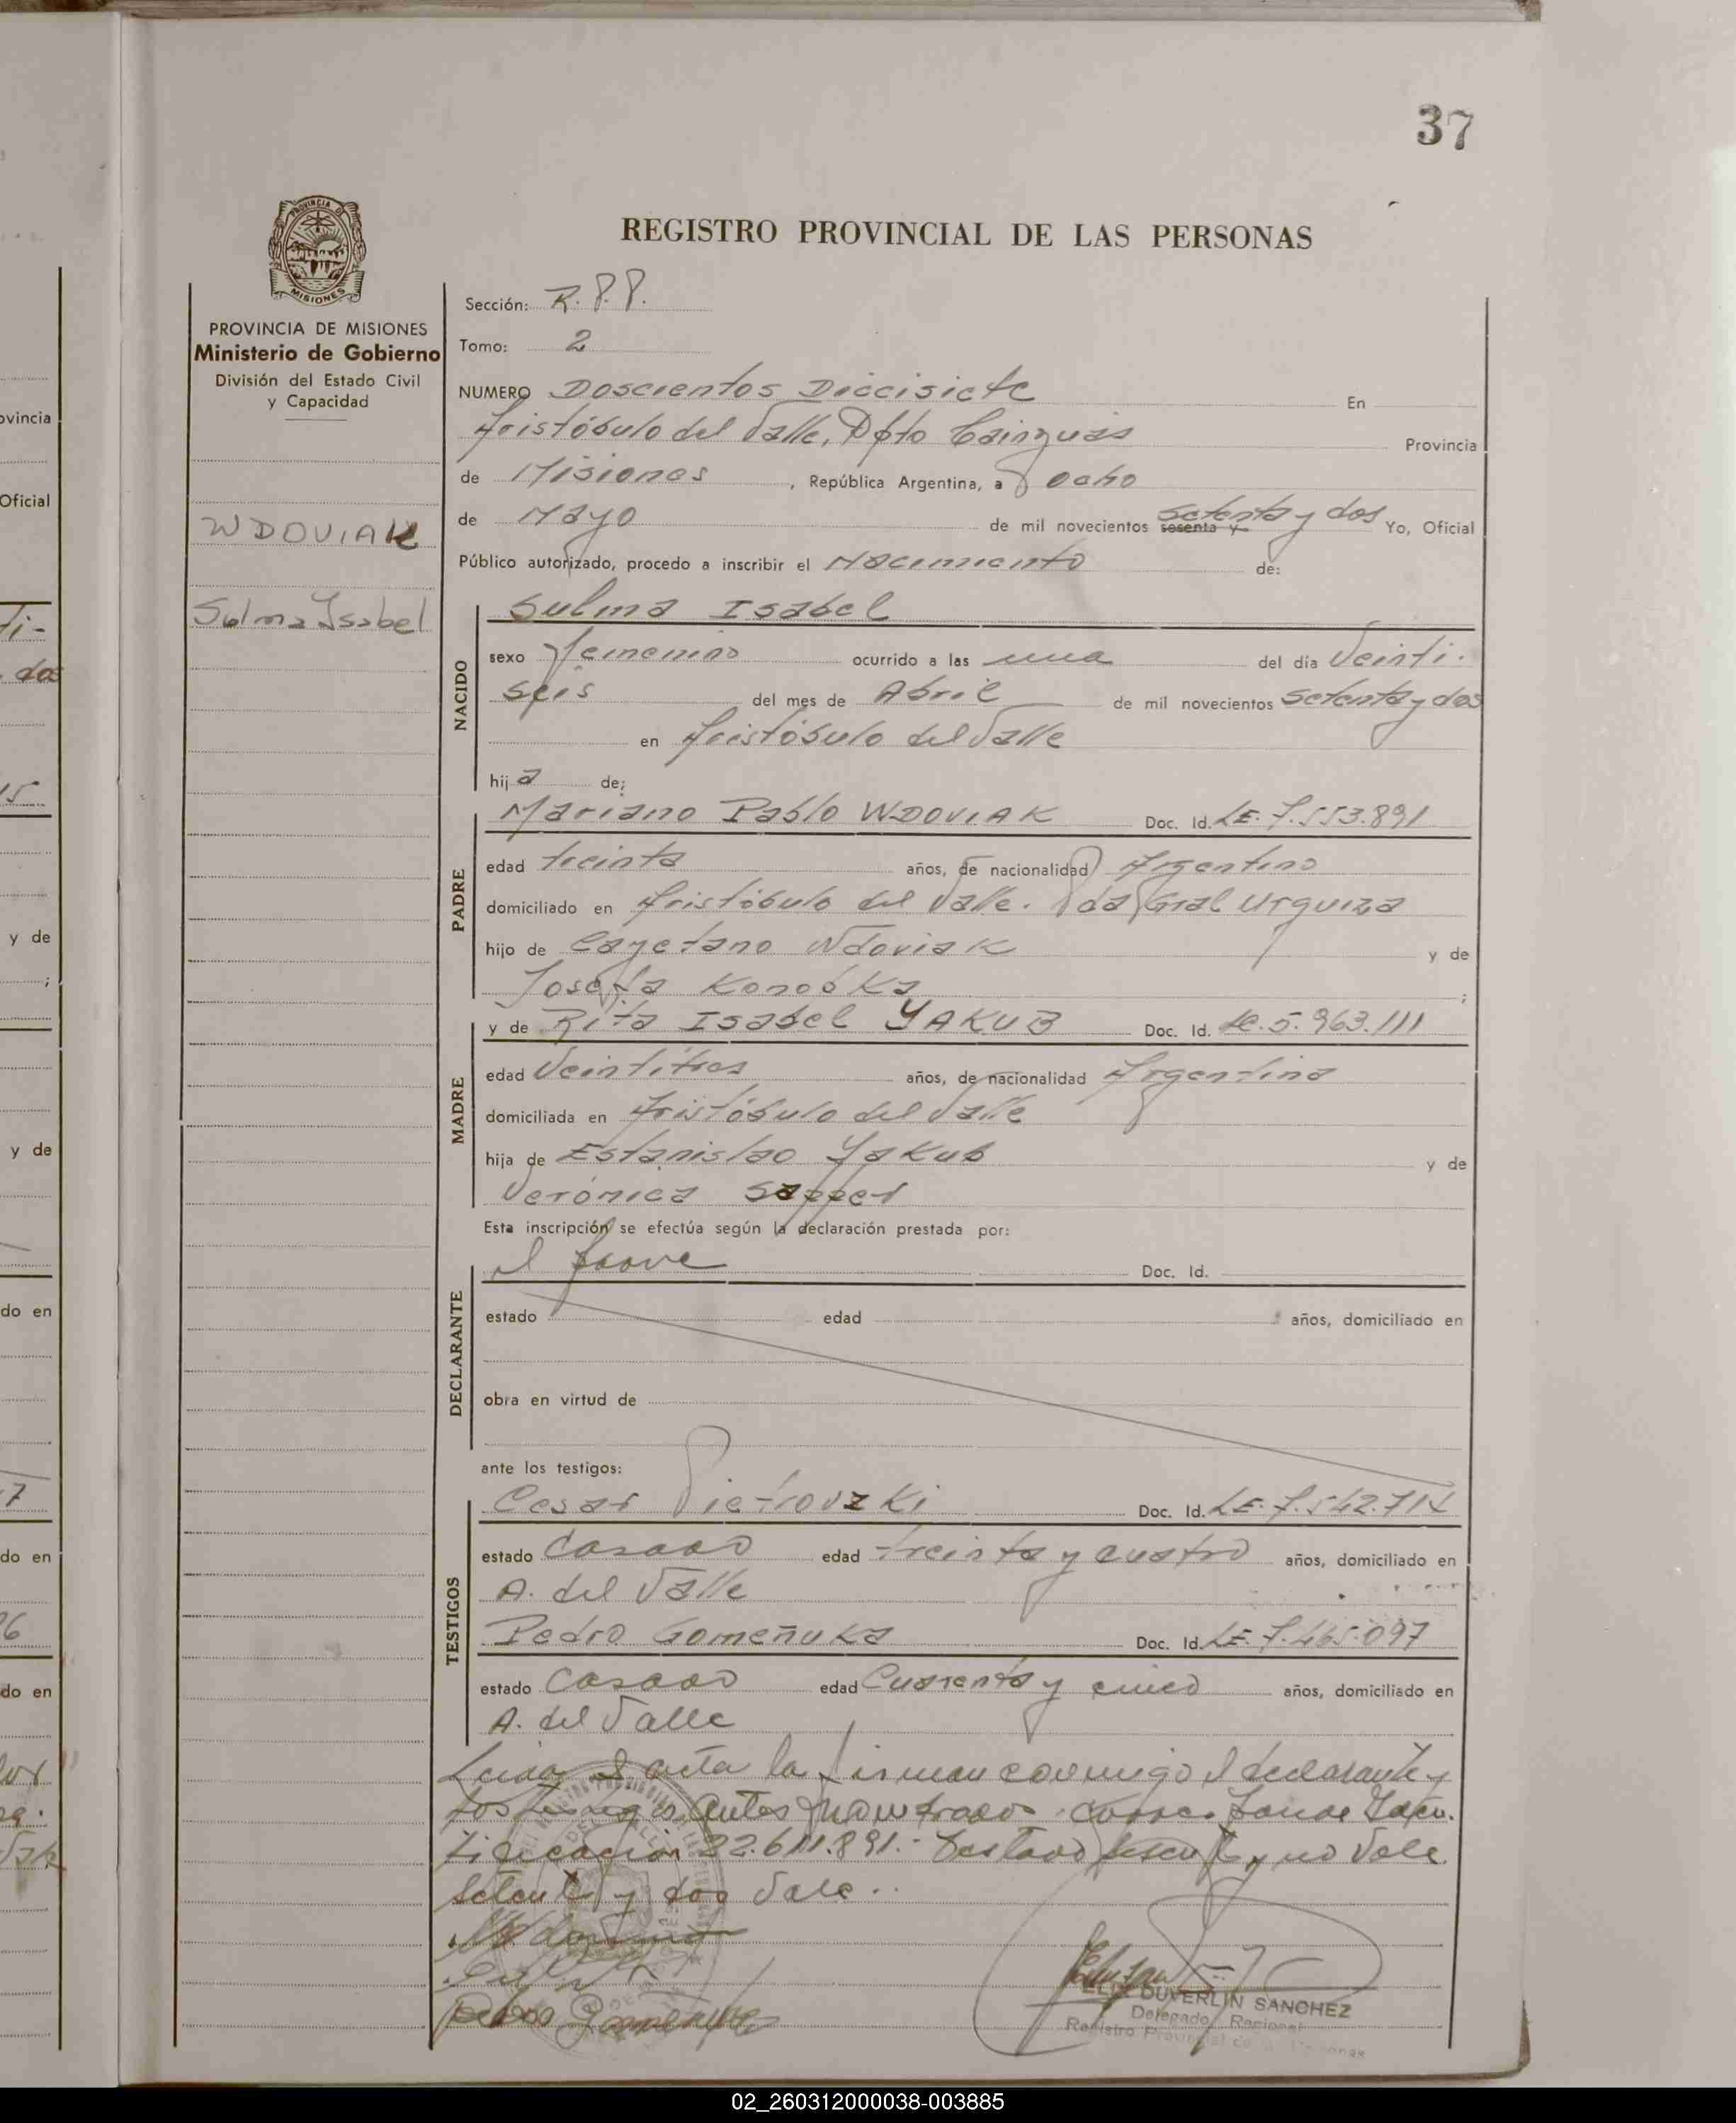 37
REGISTRO PROVINCIAL DE LAS PERSONAS
PROVINCIA DE MISIONES
Ministerio de Gobierno
División del Estado Civil
y Capacidad
WDOVIAK
Sulma Isabel
Sección: R.P.P.
Tomo: 2
NUMERO Doscientos Diecisiete En
Aristóbulo del Valle, Dpto Cainguás Provincia
de Misiones, República Argentina, a ocho
de Mayo de mil novecientos sesenta y setenta y dos Yo, Oficial
Público autorizado, procedo a inscribir el Nacimiento de:
NACIDO
Sulma Isabel
sexo femenino ocurrido a las una del día Veinti-
seis del mes de Abril de mil novecientos setenta y dos
en Aristóbulo del Valle
hija de;
PADRE
Mariano Pablo WDOVIAK Doc. Id. LE. 7.553.891
edad treinta años, de nacionalidad Argentino
domiciliado en Aristóbulo del Valle. Pda Gral Urquiza
hijo de Cayetano Wdoviak y de
Josefa Konobka ;
MADRE
y de Rita Isabel YAKUB Doc. Id. LC. 5.963.111
edad Veintitres años, de nacionalidad Argentina
domiciliada en Aristóbulo del Valle
hija de Estanislao Yakub y de
Verónica Sapper
Esta inscripción se efectúa según la declaración prestada por:
DECLARANTE
el padre Doc. Id.
estado edad años, domiciliado en
obra en virtud de
ante los testigos:
TESTIGOS
Cesar Pietrovzki Doc. Id. LE. 7.542.714
estado Casado edad treinta y cuatro años, domiciliado en
A. del Valle
Pedro Gomeñuka Doc. Id. LE. 7.465.097
estado Casado edad Cuarenta y cinco años, domiciliado en
A. del Valle
Leida el acta la firman conmigo el declarante y
los testigos antes nombrados. Corresponde Iden-
tificación 22.611.891.- Testado sesenta y no Vale.
Setenta y dos Vale.
Pedro Gomeñuka
FELIX DUVERLIN SANCHEZ
Delegado Regional
Registro Provincial de las Personas
02_260312000038-003885